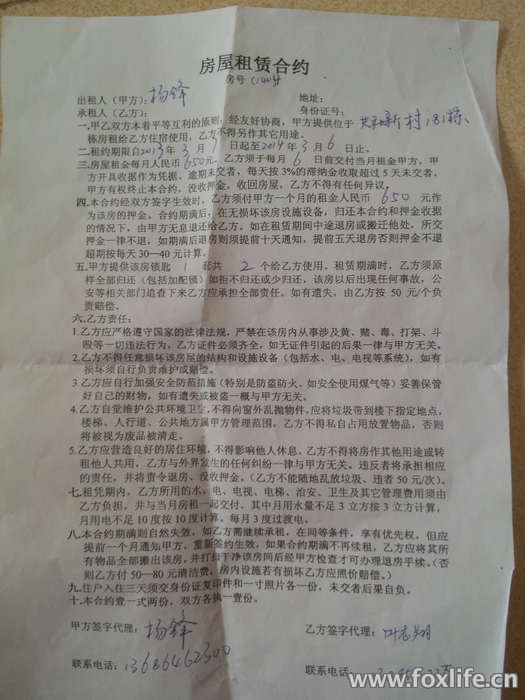 房屋租赁合约
房号
出租人（甲方）：杨锋 地址：
承租人（乙方）： 身份证号：
一.甲乙双方本着平等互利的原则，经友好协商，甲方提供位于 新村
栋房租给乙方住宿使用，乙方不得另作其它用途。
二.租约期限自2013年3月7日起至2014年3月6日止。
三.房屋租金每月人民币650元。乙方须于每月6日前交付当月租金甲方，甲
方开具收据作为凭据，逾期未交者，每天按3%的滞纳金收取超过5天未交者，
甲方有权终止本合约，没收押金，收回房屋，乙方不得有任何异议。
四.本合约经双方签字生效时，乙方须付甲方一个月的租金人民币650元作
为该房的押金。合约期满后，在无损坏该房设施设备，归还本合约和押金收据
的情况下，由甲方无息退还给乙方。如在租赁期间中途退房或搬迁他处，所交
押金一律不退，如期满后退房则须提前十天通知，提前五天退房否则押金不退
超期按每天30—40元计算。
五.甲方提供该房锁匙1 共2个给乙方使用，租赁期满时，乙方须原
样全部归还（包括加配锁）如拒不归还或少归还，该房以后出现任何事故，公
安等相关部门追查下来乙方应承担全部责任。如有遗失，由乙方按50元/个负
责赔偿。
六.乙方责任：
1.乙方应严格遵守国家的法律法规，严禁在该房内从事涉及黄、赌、毒、打架、斗
殴等一切违法行为，乙方证件必须齐全，如无证件引起的后果一律与甲方无关。
2.乙方不得任意损坏该房屋的结构和设施设备（包括水、电、电视等系统），如有
损坏须自行负责维护或赔偿。
3.乙方应自行加强安全防范措施（特别是防盗防火、如安全使用煤气等）妥善保管
好自己的财物，如有遗失或被盗一概与甲方无关。
4.乙方自觉维护公共环境卫生，不得向窗外乱抛物件，应将垃圾带到楼下指定地点，
楼梯、人行道、公共地方属甲方管理范围，乙方不得私自占用放置物品，否则
将被视为废品被清走。
5.乙方应营造良好的居住环境，不得影响他人休息，乙方不得将房作其他用途或转
租他人共用，乙方与外界发生的任何纠纷一律与甲方无关。违反者将承担相应
的责任，并将责令退房、没收押金。（乙方不能随地乱放垃圾、违者50元/次）。
七.租凭期内，乙方所用的水、电、电视、电梯、治安、卫生及其它管理费用须由
乙方负担，并与当月房租一起交付。其中月用水量不足3立方按3立方计算，
月用电不足10度按10度计算，每月3度过渡电。
八.本合约期满则自然失效，如乙方需继续承租，在同等条件，享有优先权，但应
提前一个月通知甲方，重新签约生效，如果合约期满不再续租，乙方应将其所
有物品全部搬出该房，并打扫干净该房间后经甲方检查才可办理退房手续。（否
则乙方付50—80元清洁费，房内设施若有损坏乙方应照价赔偿。）
九.住户入住三天须交身份证复印件和一寸照片各一份，未交者后果自负。
十.本合约壹一式两份，双方各执一壹份。
甲方签字代理：杨锋 乙方签字代理：
联系电话：13686462300 联系电话：
www.foxlife.cn